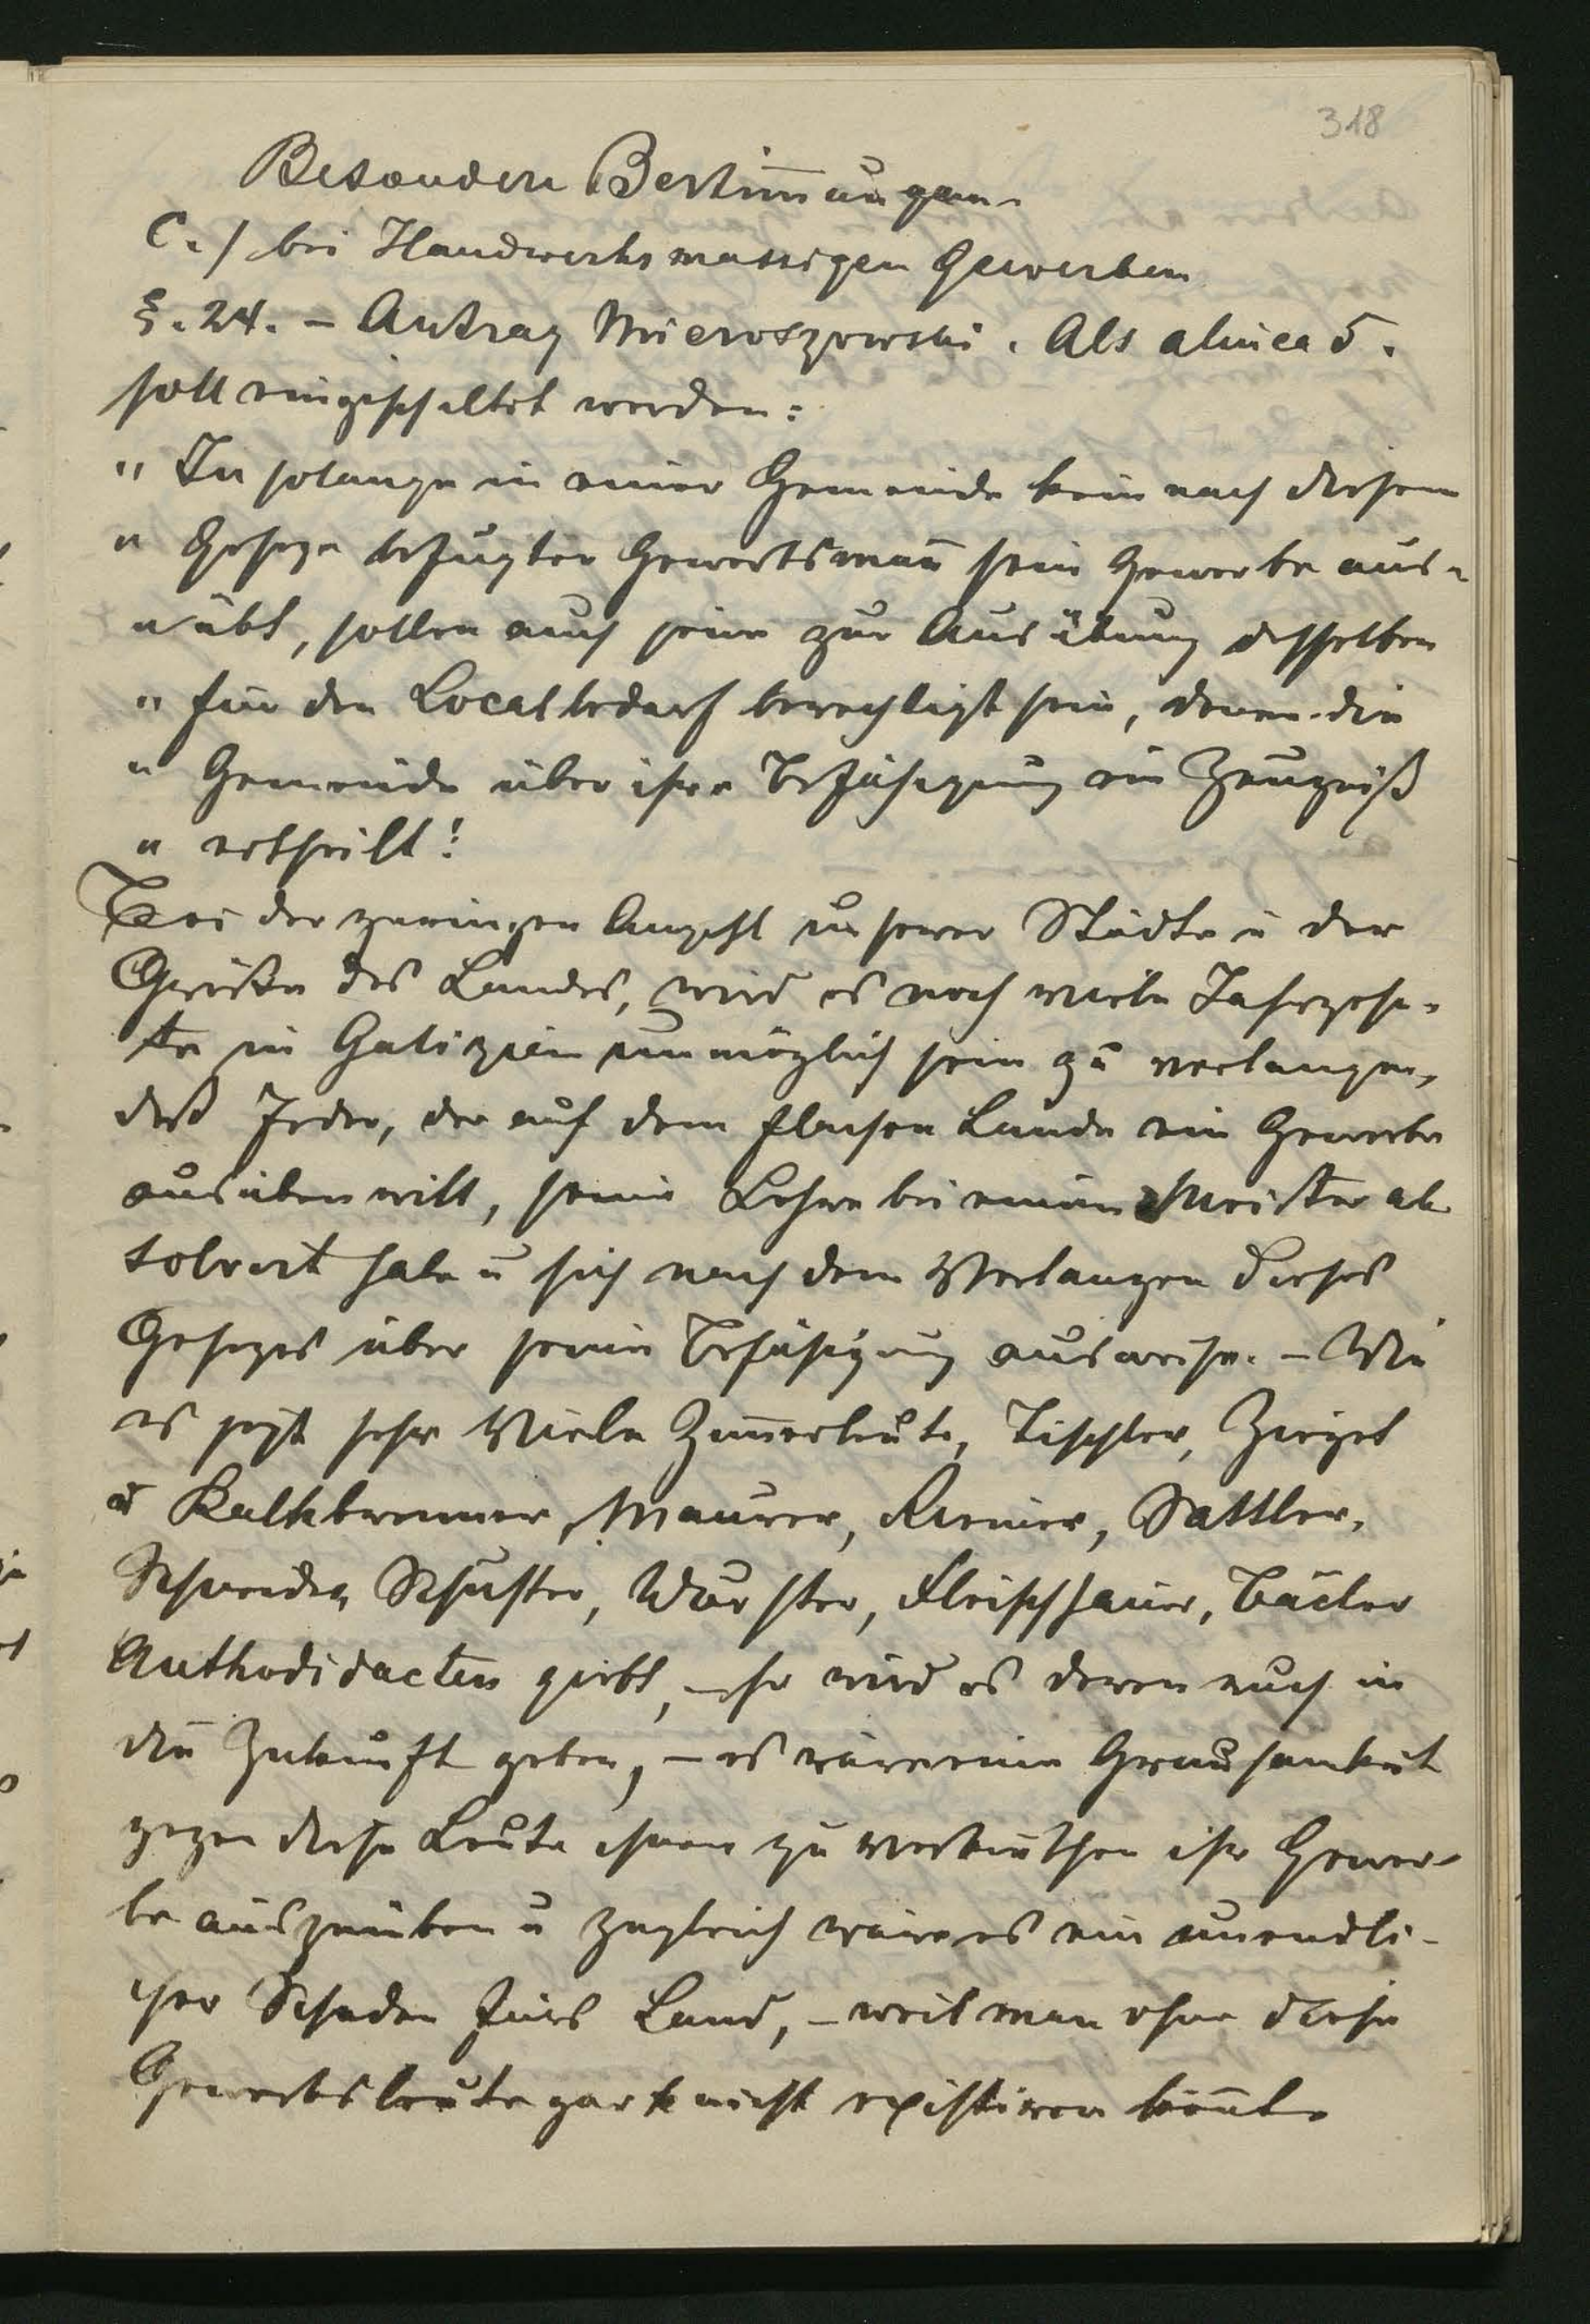 318
Besondere Bestim̄ungen.
C./ bei Handwerksmassigen Gewerben
§. 24. – Antrag Mieroszowski. Als alinea 5.
soll eingeschaltet werden:
" In solange in einer Gemeinde kein nach diesem
" Geseze befugter Gewerbsman̄ sein Gewerbe aus-
" übt, sollen auch jene zur Ausübung desselben
" für den Localbedarf berechtigt sein, denen die
" Gemeinde über ihre Befähigung ein Zeugniß
" ertheilt!
Bei der geringen Anzahl unserer Städte u der
Größe des Landes, wird es noch viele Jahrzehn-
te in Galizien unmöglich sein zu verlangen,
daß Jeder, der auf dem flachen Lande ein Gewerbe
ausüben will, seine Lehre bei einem Meister ab
solvirt habe u sich nach dem Verlangen dieses
Gesezes über seine Befähigung ausweise. – Wie
es jezt sehr Viele Zim̄erleute, Tischler, Ziegel
u Kalkbrenner, Maurer, Riemer, Sattler,
Schneider, Schuster, Wurster, Fleischhauer, Bäcker
Authodidacten giebt, – so wird es deren auch in
die Zukunft geben, – es wäre eine Grausamkeit
gegen diese Leute ihnen zu verbiethen ihr Gewer-
be auszuüben u zugleich wäre es ein unendli-
cher Schaden fürs Land, – weil man ohne diese
Gewerbsleute gar nicht existiren kön̄te